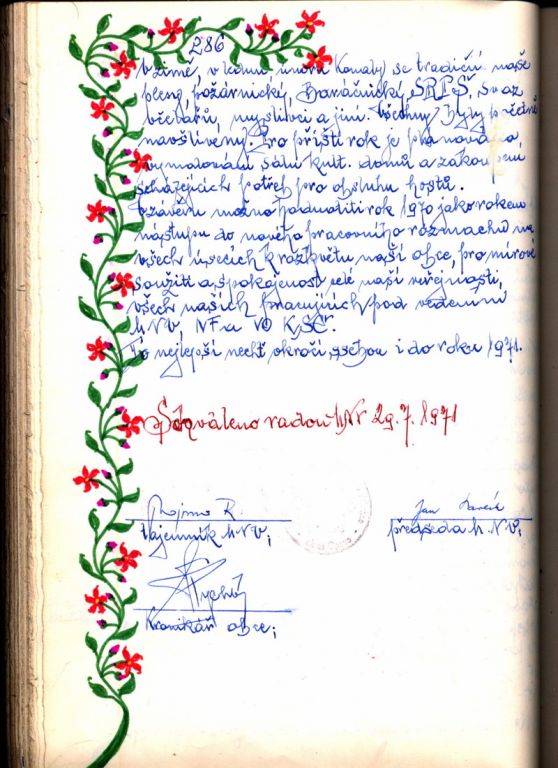 286
V zimě, v lednu únoru konaly se tradiční naše
plesy, požárnický, Baráčnický, SRPŠ, Svaz
včelařů, myslivci a jiní. Všechny byly početně
navštíveny. Pro příští rok je plánováno
vymalování sálu kult. domu a zakoupení
scházejících potřeb pro obsluhu hostů.
V závěru možno hodnotiti rok 1970 jako rokem
nástupu do nového pracovního rozmachu na
všech úsecích k rozkvětu naší obce, pro mírové
soužití a spokojenost celé naší veřejnosti,
všech našich pracujících pod vedením
MNV, NF a VO KSČ.
To nejlepší nechť vkročí sebou i do roku 1971.
Schváleno radou MNV 29. 7. 1971
R.
tajemník MNV;
Jan
předseda MNV;
Kronikář obce;